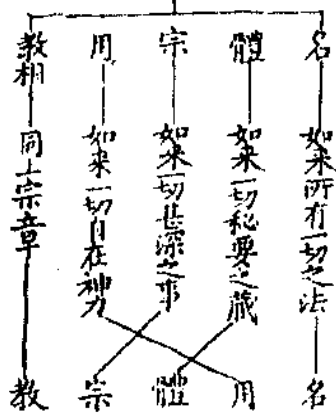 名 如来所有一切之法 名
體 如来一切秘要之蔵 用
宗 如来一切甚深之事 體
用 如来一切自在神力 宗
教相 同上宗章 教